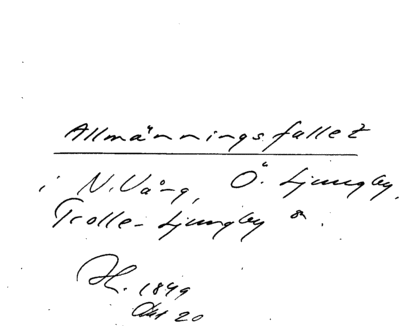 Allmänningsfallet
i N. Vång, Ö. Ljungby,
Trolle-Ljungby
1849
20